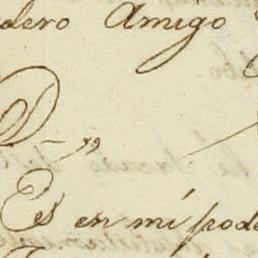 dero Amigo
D.ⁿ
Es en mi pode